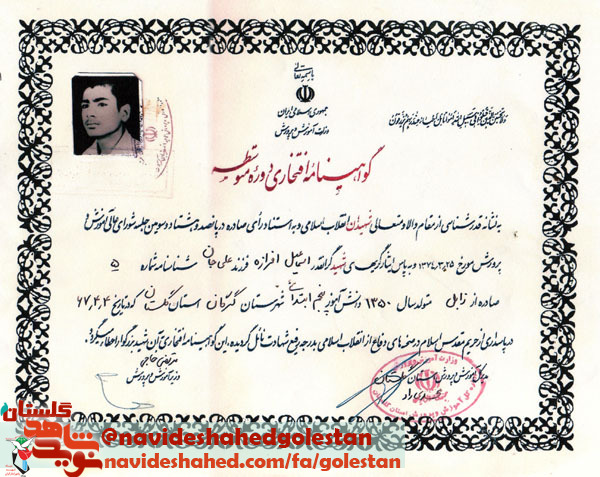 باسمه تعالی
جمهوری اسلامی ایران
وزارت آموزش و پرورش
گواهینامه افتخاری دوره متوسطه
به نشانه قدرشناسی از مقام والا و متعالی شهیدان انقلاب اسلامی و به استناد رأی صادره در پانصد و هشتاد و سومین جلسه شورای عالی آموزش و
پرورش مورخ ۱۳۷۴/۳/۲۵ و به پاس ایثارگری شهید گرانقدر اسمعیل افرازه فرزند علی جان شناسنامه شماره ۵
صادره از زابل متولد سال ۱۳۵۰ دانش آموز پنجم ابتدائی شهرستان استان گلستان که در تاریخ ۶۷,۴,۴
در پاسداری از حریم مقدس اسلام در صحنه های دفاع از انقلاب اسلامی به درجه رفیع شهادت نائل گردیده، این گواهینامه افتخاری آن شهید بزرگوار اعطاء میگردد.
مدیرکل آموزش و پرورش استان گلستان
مرتضی حاجی
وزیر آموزش و پرورش
گلستان
نوید شاهد
@navideshahedgolestan
navideshahed.com/fa/golestan